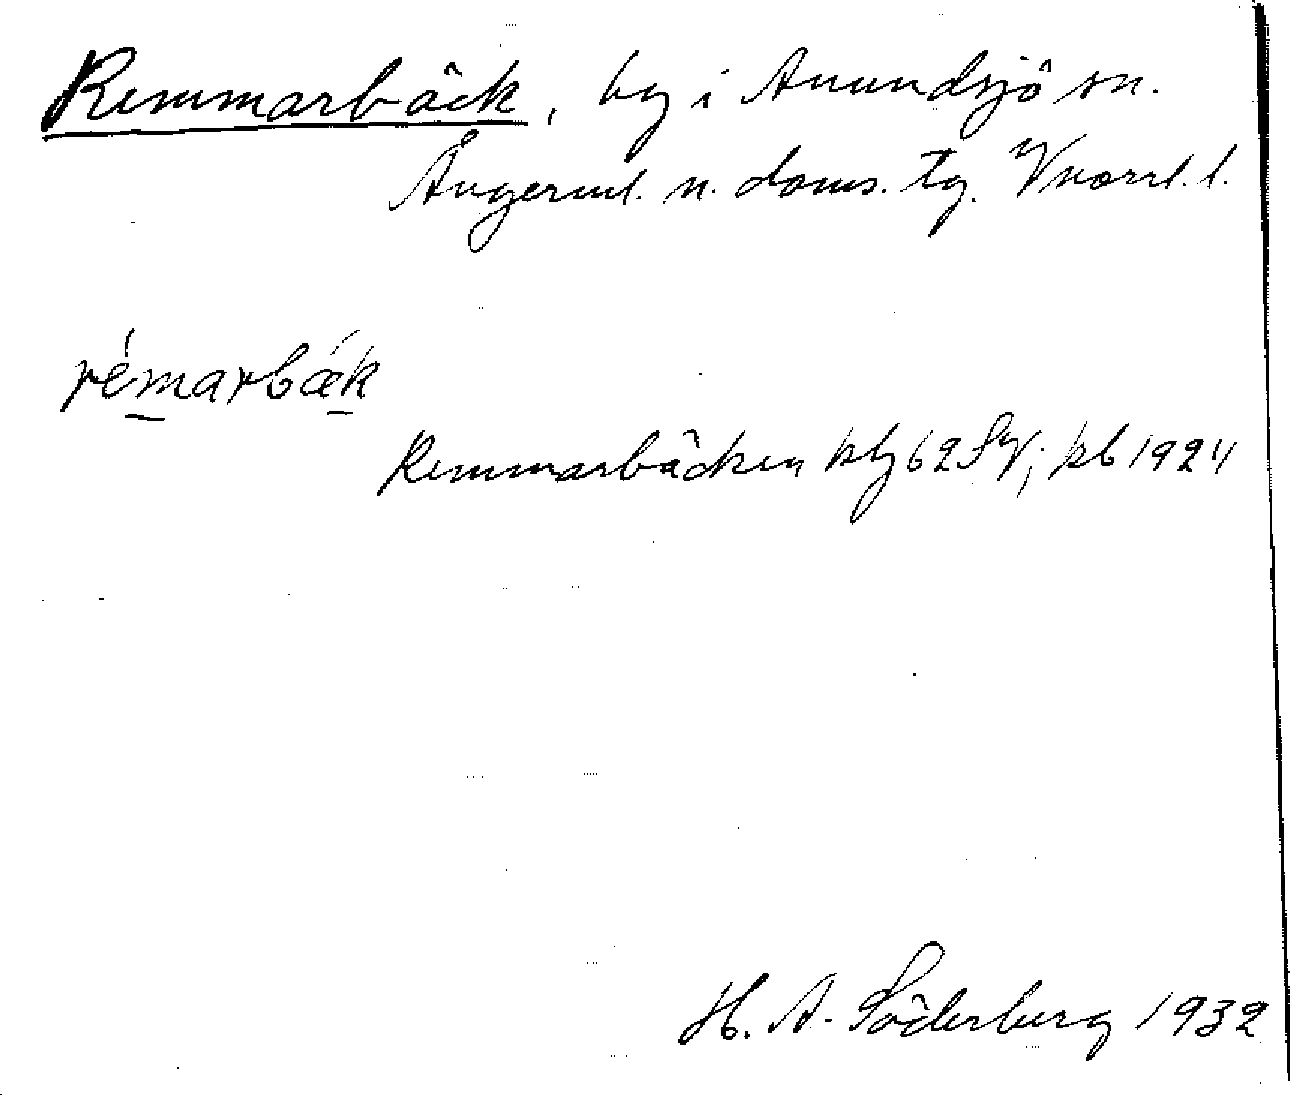 Remmarbäck, by i Anundsjö sn.
Ångerml. n. doms. tg. Vnorrl. l.
rémarbǽk
Remmarbäcken bl 62 SV; kb 1924
H. A. Söderberg 1932